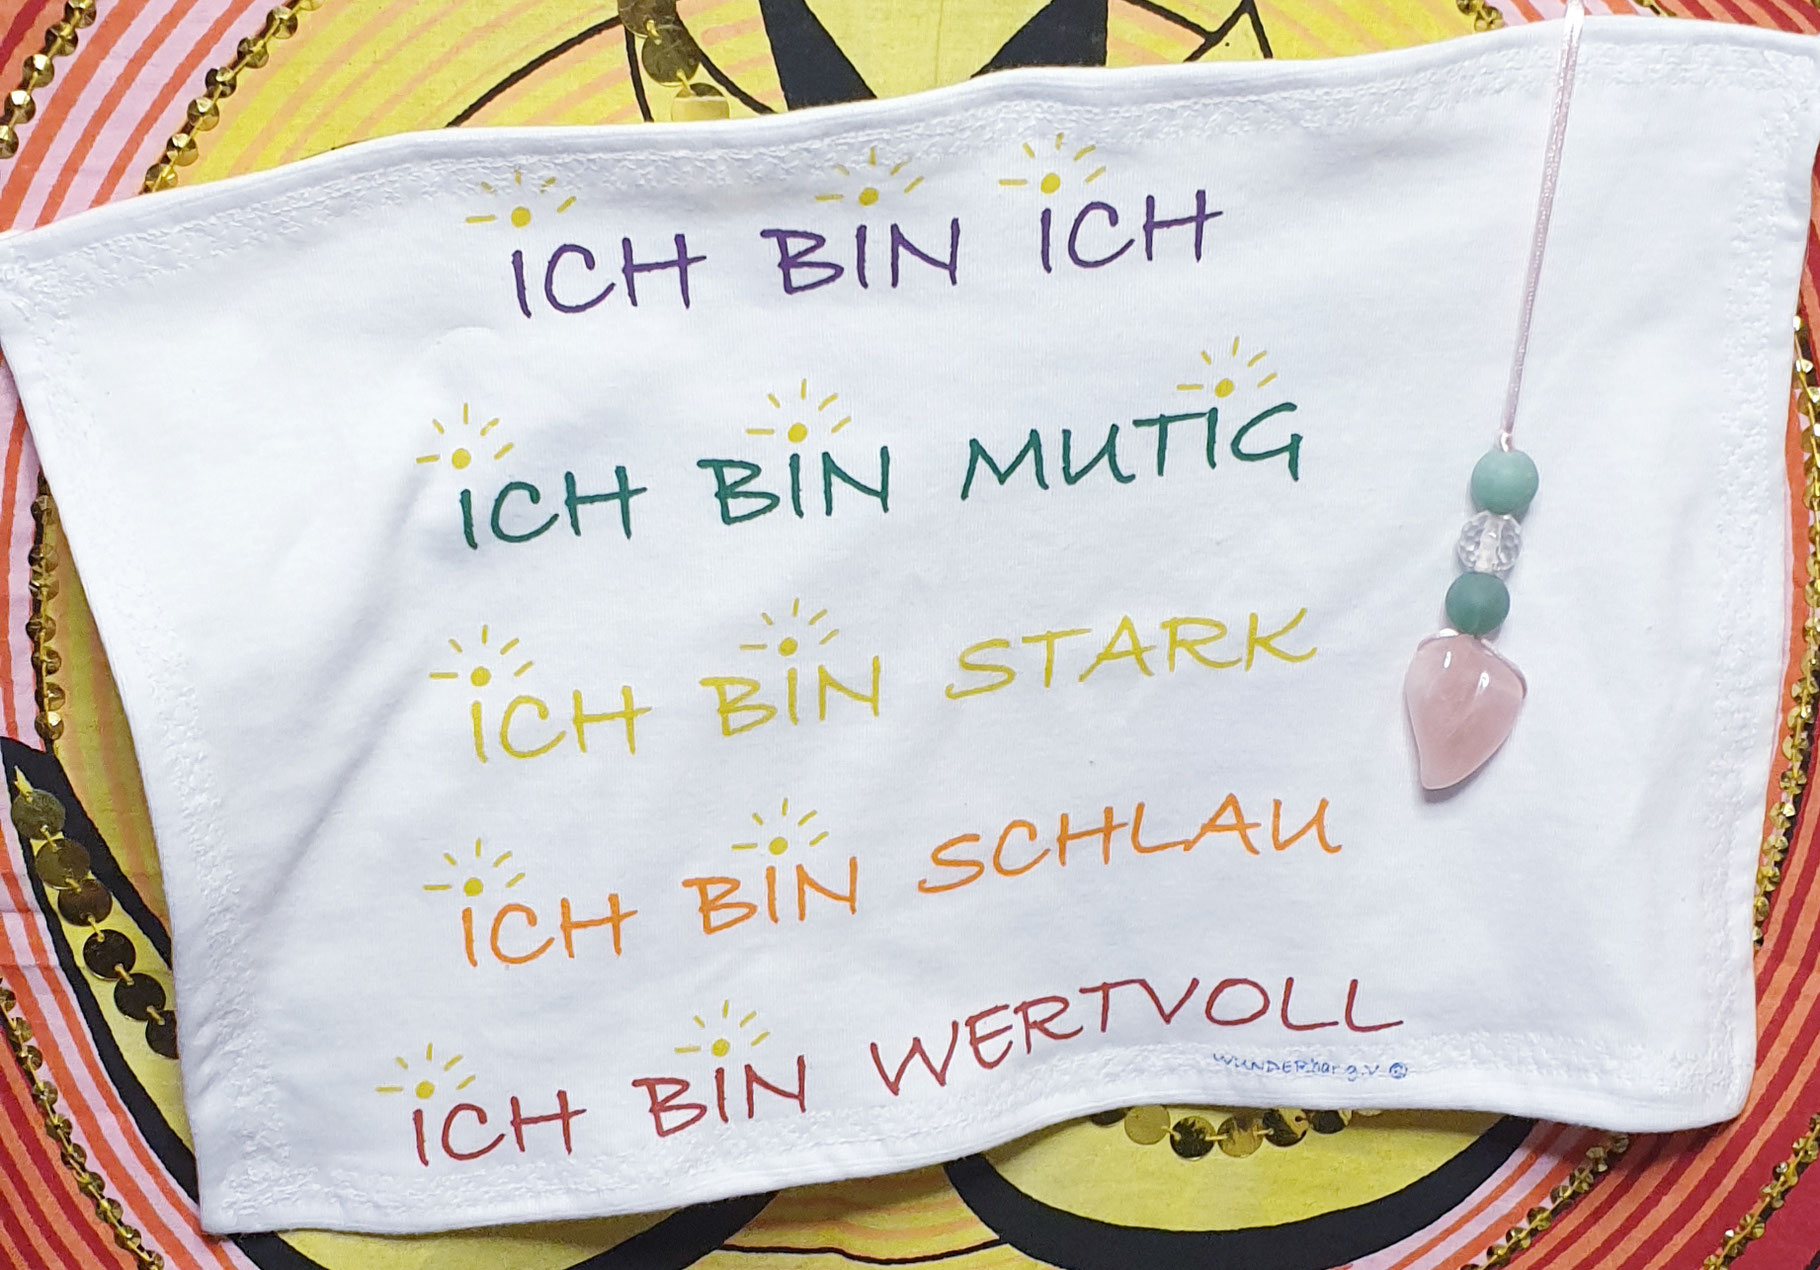 ICH BIN ICH
ICH BIN MUTIG
ICH BIN STARK
ICH BIN SCHLAU
ICH BIN WERTVOLL
WUNDERbar e.V.